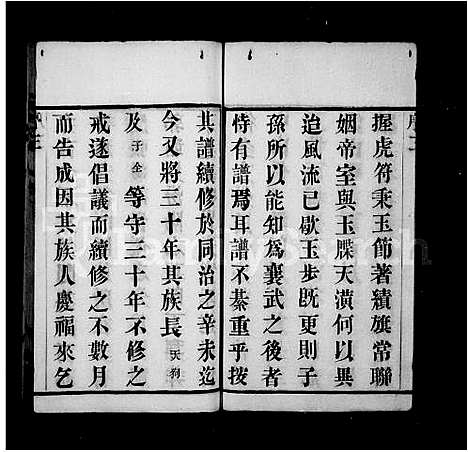 握虎符秉玉節著績旗常聯
姻帝室與玉牒天潢何以異
迨風流已歇玉步旣更則子
孫所以能知爲襄武之後者
恃有譜焉耳譜不綦重乎按
其譜續修於同治之辛未迄
今又將三十年其族長天狗
及子全等守三十年不修之
戒遂倡議而續修之不數月
而告成因其族人慶福來乞